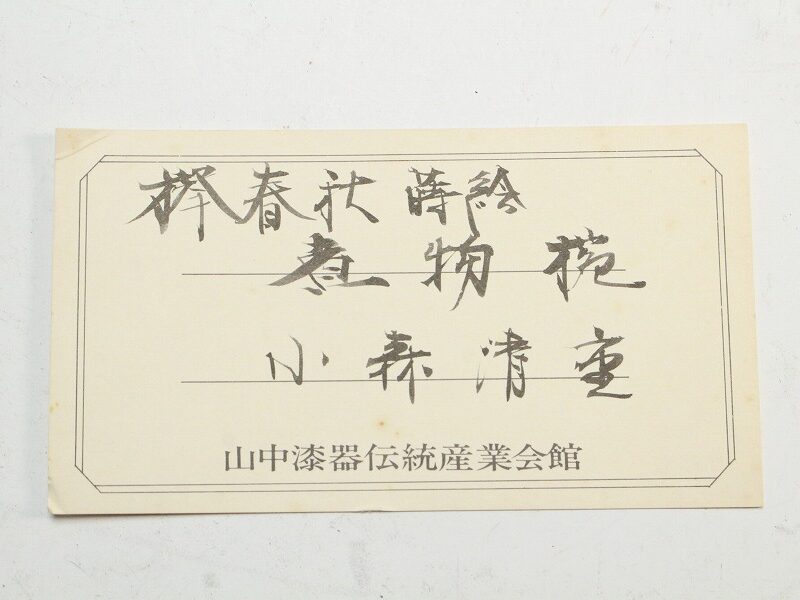 欅春秋蒔絵
煮物椀
小森清重
山中漆器伝統産業会館